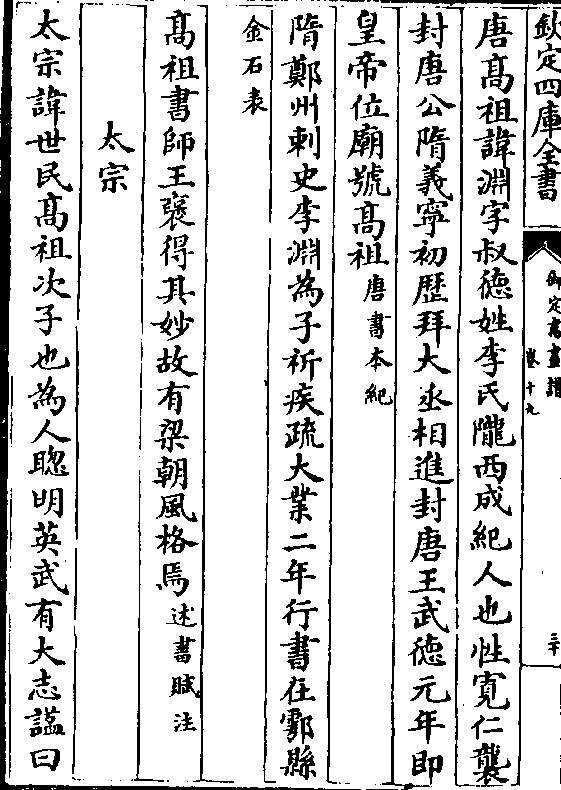 欽定四庫全書
御定書畫譜
卷十九
三十
唐髙祖諱淵字叔徳姓李氏隴西成紀人也性寛仁襲
封唐公隋義寧初歴拜大丞相進封唐王武徳元年即
皇帝位廟號髙祖唐書本紀
隋鄭州刺史李淵為子祈疾疏大業二年行書在鄠縣
金石表
髙祖書師王褒得其妙故有梁朝風格焉述書賦注
太宗
太宗諱世民髙祖次子也為人聰明英武有大志諡曰